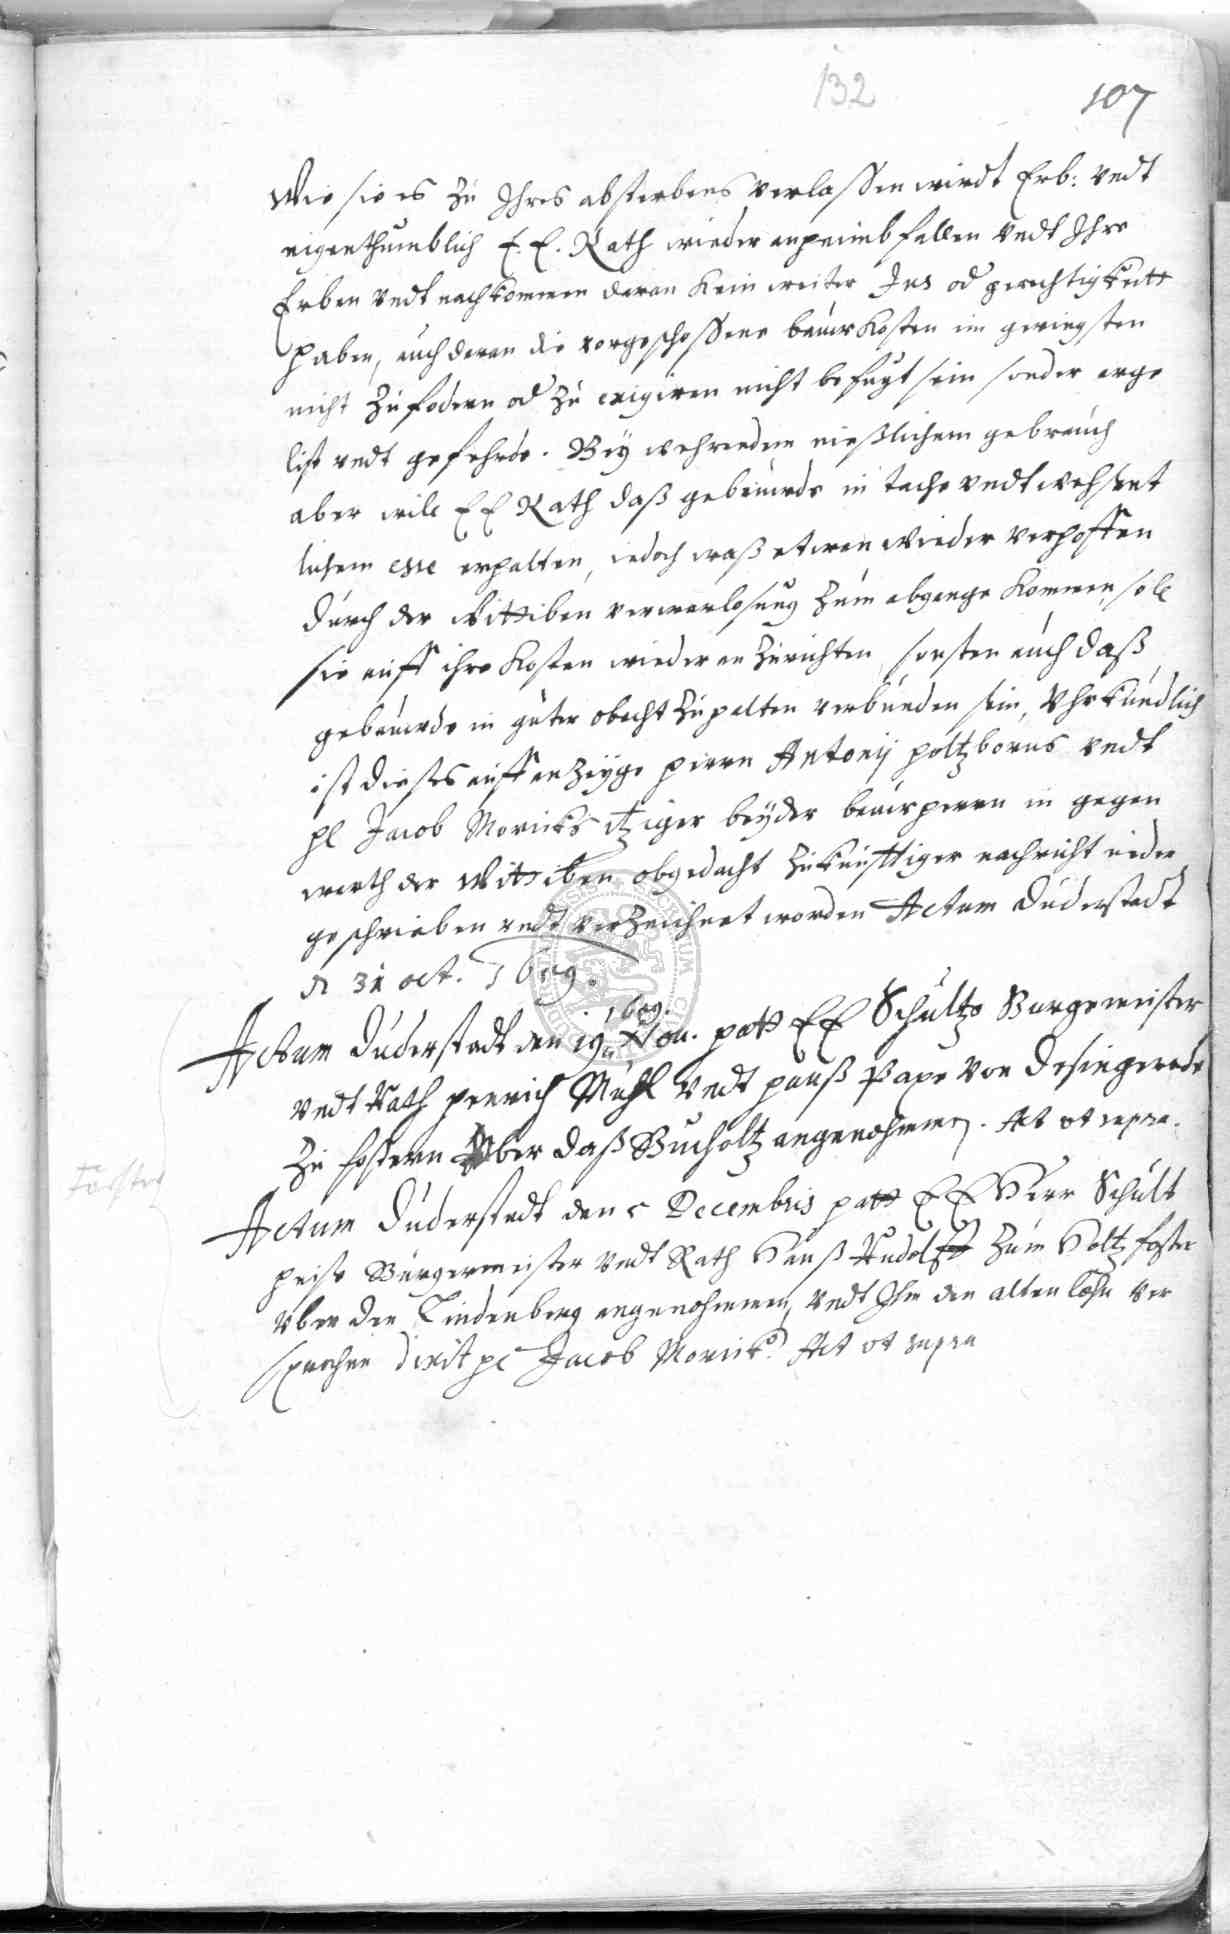 132
107
Wie sie es zu Ihres absterbens verlassen wirdt Erb: vndt
eigenthumblich E. E. Rath wieder anheimbfallen vndt Ihre
Erben vndt nachkommen daran kein weiter Jus od gerechtigkeitt
haben, auch deren die vorgeschossene bauwkosten im geringsten
nicht zu fodern od zu exigiren nicht befugt sein sonder arge
list vndt gefehrde. Bey wehrendem nießlichem gebrauch
aber will E E Rath daß gebeuwde in tache vndt wehsent
lichem esse erhalten, iedoch waß etwan wieder verhoffen
durch der Wittiben verwarlosung zum abgange kommen, soll
sie auff ihre kosten wieder an zurichten, sonsten auch daß
gebeuwde in guter obacht zuhalten verbunden sein, Vhrkundlich
ist dieses auff anzeige herrn Antonij holtzborns vndt
hl Jacob Moricks itziger beyder bauwherrn in gegen
warth der Wittiben obgedacht zukunfftiger nachricht nieder
geschrieben vndt verzeichnet worden Actum Duderstadt
d 31 oct. 1609.
1609.
Actum Duderstadt den 19 Nou. hatt E E Schultze Burgemeister
vndt Rath henrich Muhl vndt hanß Pape von Desingerode
zu fostern Vber daß Bucholtz angenohmen. Act ut supra.
Forster
Actum Duderstadt den 5 Decembris hatt E E Herr Schult
heise Burgermeister vndt Rath Hanß Rudolff zum Holtz foster
vber den Lindenberg angenohmmen, vndt Ihm den alten lohn ver
sprochen dixit hl Jacob Morick. Act ut supra